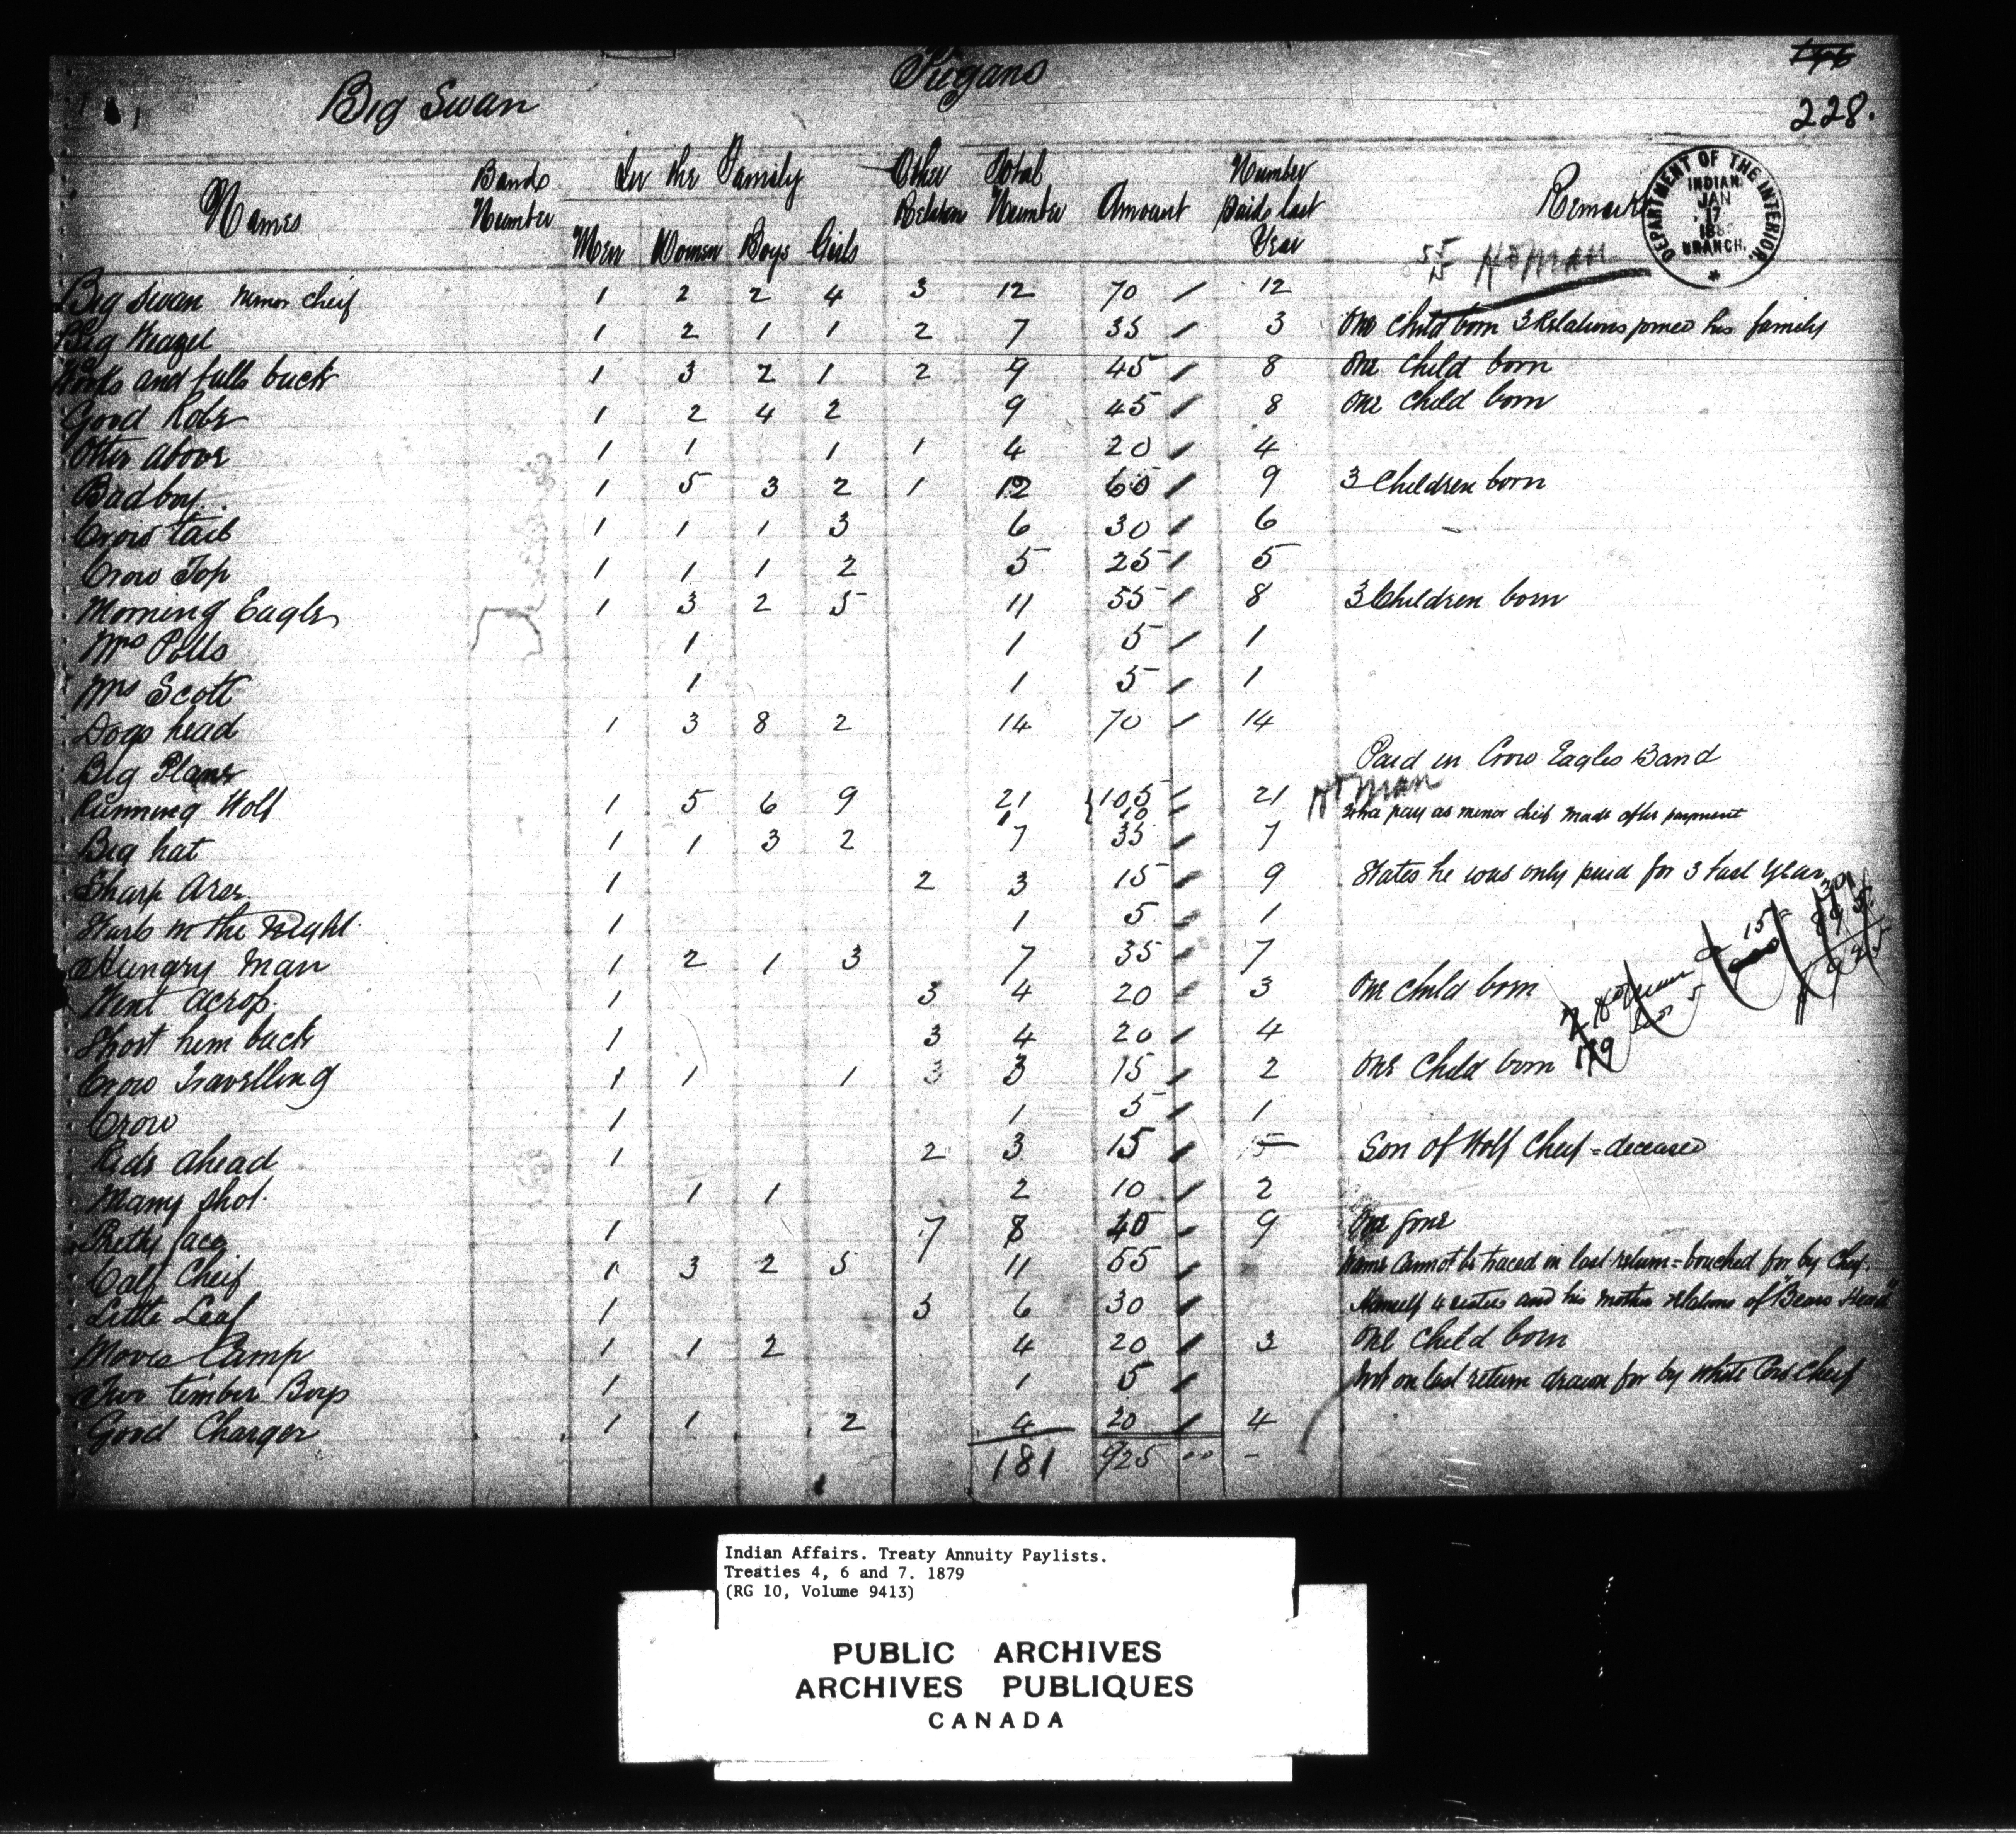 Piegans
Big Swan
228.
Names Bands Number In the Family Men Women Boys Girls Other Relations Total Number Amount Number Paid last Year Remarks
DEPARTMENT OF THE INTERIOR
INDIAN
JAN
17
BRANCH.
Big Swan minor cheif 1 2 2 4 3 12 70 12
Big 1 2 1 1 2 7 35 3 One Child born 3 Relations joined his family
and falls back 1 3 2 1 2 9 45 8 One Child born
Good Robe 1 2 4 2 9 45 8 One Child born
Otter Above 1 1 1 1 4 20 4
Bad boy 1 5 3 2 1 12 60 9 3 Children born
Crow tail 1 1 1 3 6 30 6
Crow Top 1 1 1 2 5 25 5
Morning Eagle 1 3 2 5 11 55 8 3 Children born
Mrs Potts 1 1 5 1
Mrs Scott 1 1 5 1
Dogs head 1 3 8 2 14 70 14
Big Plane Paid in Crow Eagles Band
Running Wolf 1 5 6 9 21 105 10 21 pay as minor cheif made after payment
Big hat 1 1 3 2 7 35 7
Sharp 1 2 3 15 9 States he was only paid for 3 last Year
Starts in the Night 1 1 5 1
Hungry Man 1 2 1 3 7 35 7
Went Across 1 3 4 20 3 One child born
him back 1 3 4 20 4
Crow Travelling 1 1 1 3 3 15 2 One Child born
Crow 1 1 5 1
ahead 1 2 3 15 5 Son of Wolf Cheif = deceased
Many shot 1 1 2 10 2
Pretty face 1 7 8 40 9 One gone
Calf Cheif 1 3 2 5 11 55 Name Cannot be traced in last return = vouched for by Cheif.
Little Leaf 1 5 6 30 Himself 4 sisters and his mother relations of "Bears Head"
Moves Camp 1 1 2 4 20 3 One Child born
Two timber Boys 1 1 5 Not on last return drawn for by White Cheif
Good Charger 1 1 2 4 20 4
181 925 00 -
Indian Affairs. Treaty Annuity Paylists.
Treaties 4, 6 and 7. 1879
(RG 10, Volume 9413)
PUBLIC ARCHIVES
ARCHIVES PUBLIQUES
CANADA